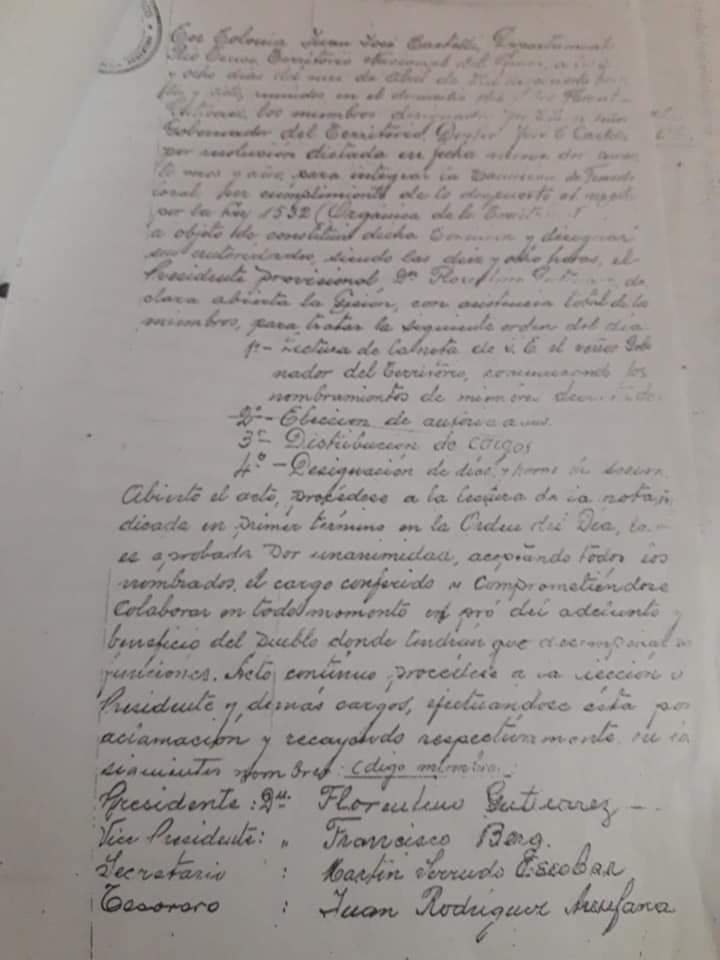 En Colonia Juan José Castelli, Departamento
Río Teuco, Territorio Nacional del Chaco, a los
y ocho días del mes de Abril de mil novecientos
y siete, reunidos en el domicilio del
los miembros designados por S.E. el señor
Gobernador del Territorio, Don José C. Castells
por resolución dictada en fecha
mes y año, para integrar la Comisión de Fomento
local, en cumplimiento de lo dispuesto al respecto
por la Ley 1532 (Orgánica de los Territorios)
a objeto de constituir dicha Comisión y designar
sus autoridades, siendo las diez y ocho horas, el
Presidente provisional, Dn. Florentino Gutierrez, de-
clara abierta la sesión, con asistencia total de los
miembros, para tratar la siguiente orden del día
1º- Lectura de la nota de S.E. el señor Gober-
nador del Territorio, comunicando los
nombramientos de miembros
2º- Elección de autoridades
3º- Distribución de cargos
4º- Designación de días y horas de sesión
Abierto el acto, procédese a la lectura de la nota in-
dicada en primer término en la Orden del Día, la
es aprobada por unanimidad, aceptando todos los
nombrados, el cargo conferido y comprometiéndose
colaborar en todo momento en pró del adelanto y
beneficio del pueblo donde tendrán que desempeñar sus
funciones. Acto contínuo procédese a la elección de
Presidente y demás cargos, efectuándose ésta por
aclamación y recayendo respectivamente en los
siguientes nombres:
Presidente: Dn. Florentino Gutierrez
Vice Presidente: " Francisco Berg.
Secretario : Martín Serrudo Escobar
Tesorero : Juan Rodriguez